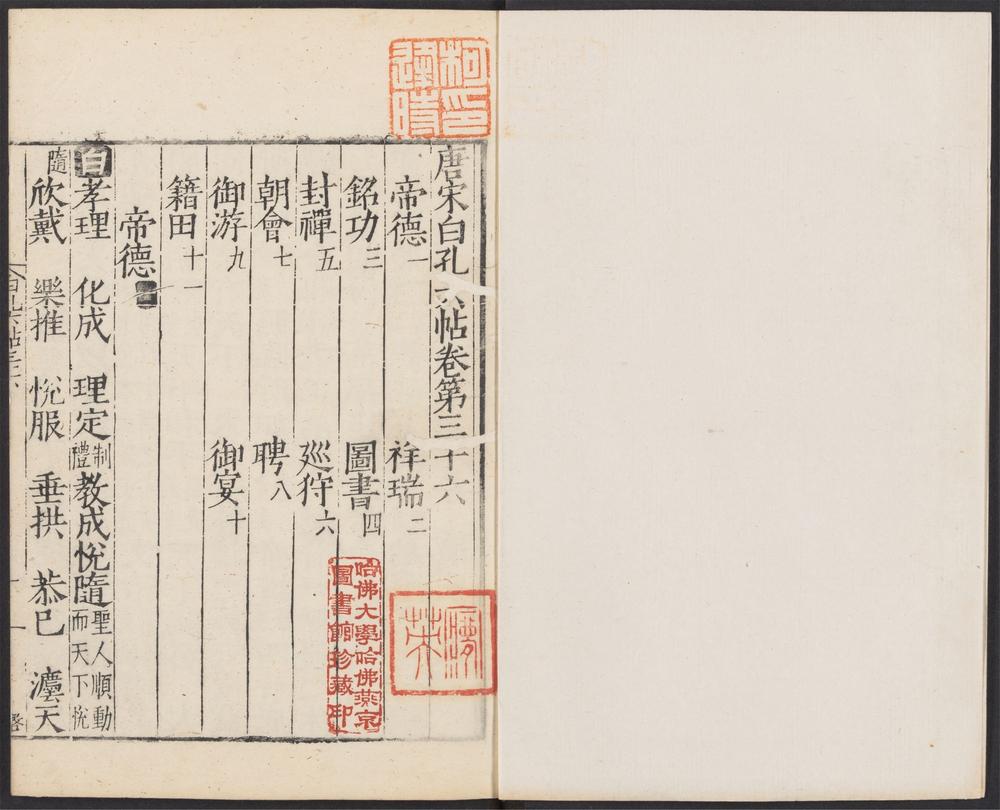 柯逢時印
唐宋白孔六帖卷第三十六
帝德一 祥瑞二
銘功三 圖書四
封禪五 廵狩六
朝會七 聘八
御游九 御宴十
籍田十一
帝德一
白孝理 化成 理定制禮教成悅隨聖人順動而天下悅
隨欣戴 樂推 悅服 垂拱 恭已 灋天
哈佛大學哈佛燕京圖書館珍藏印